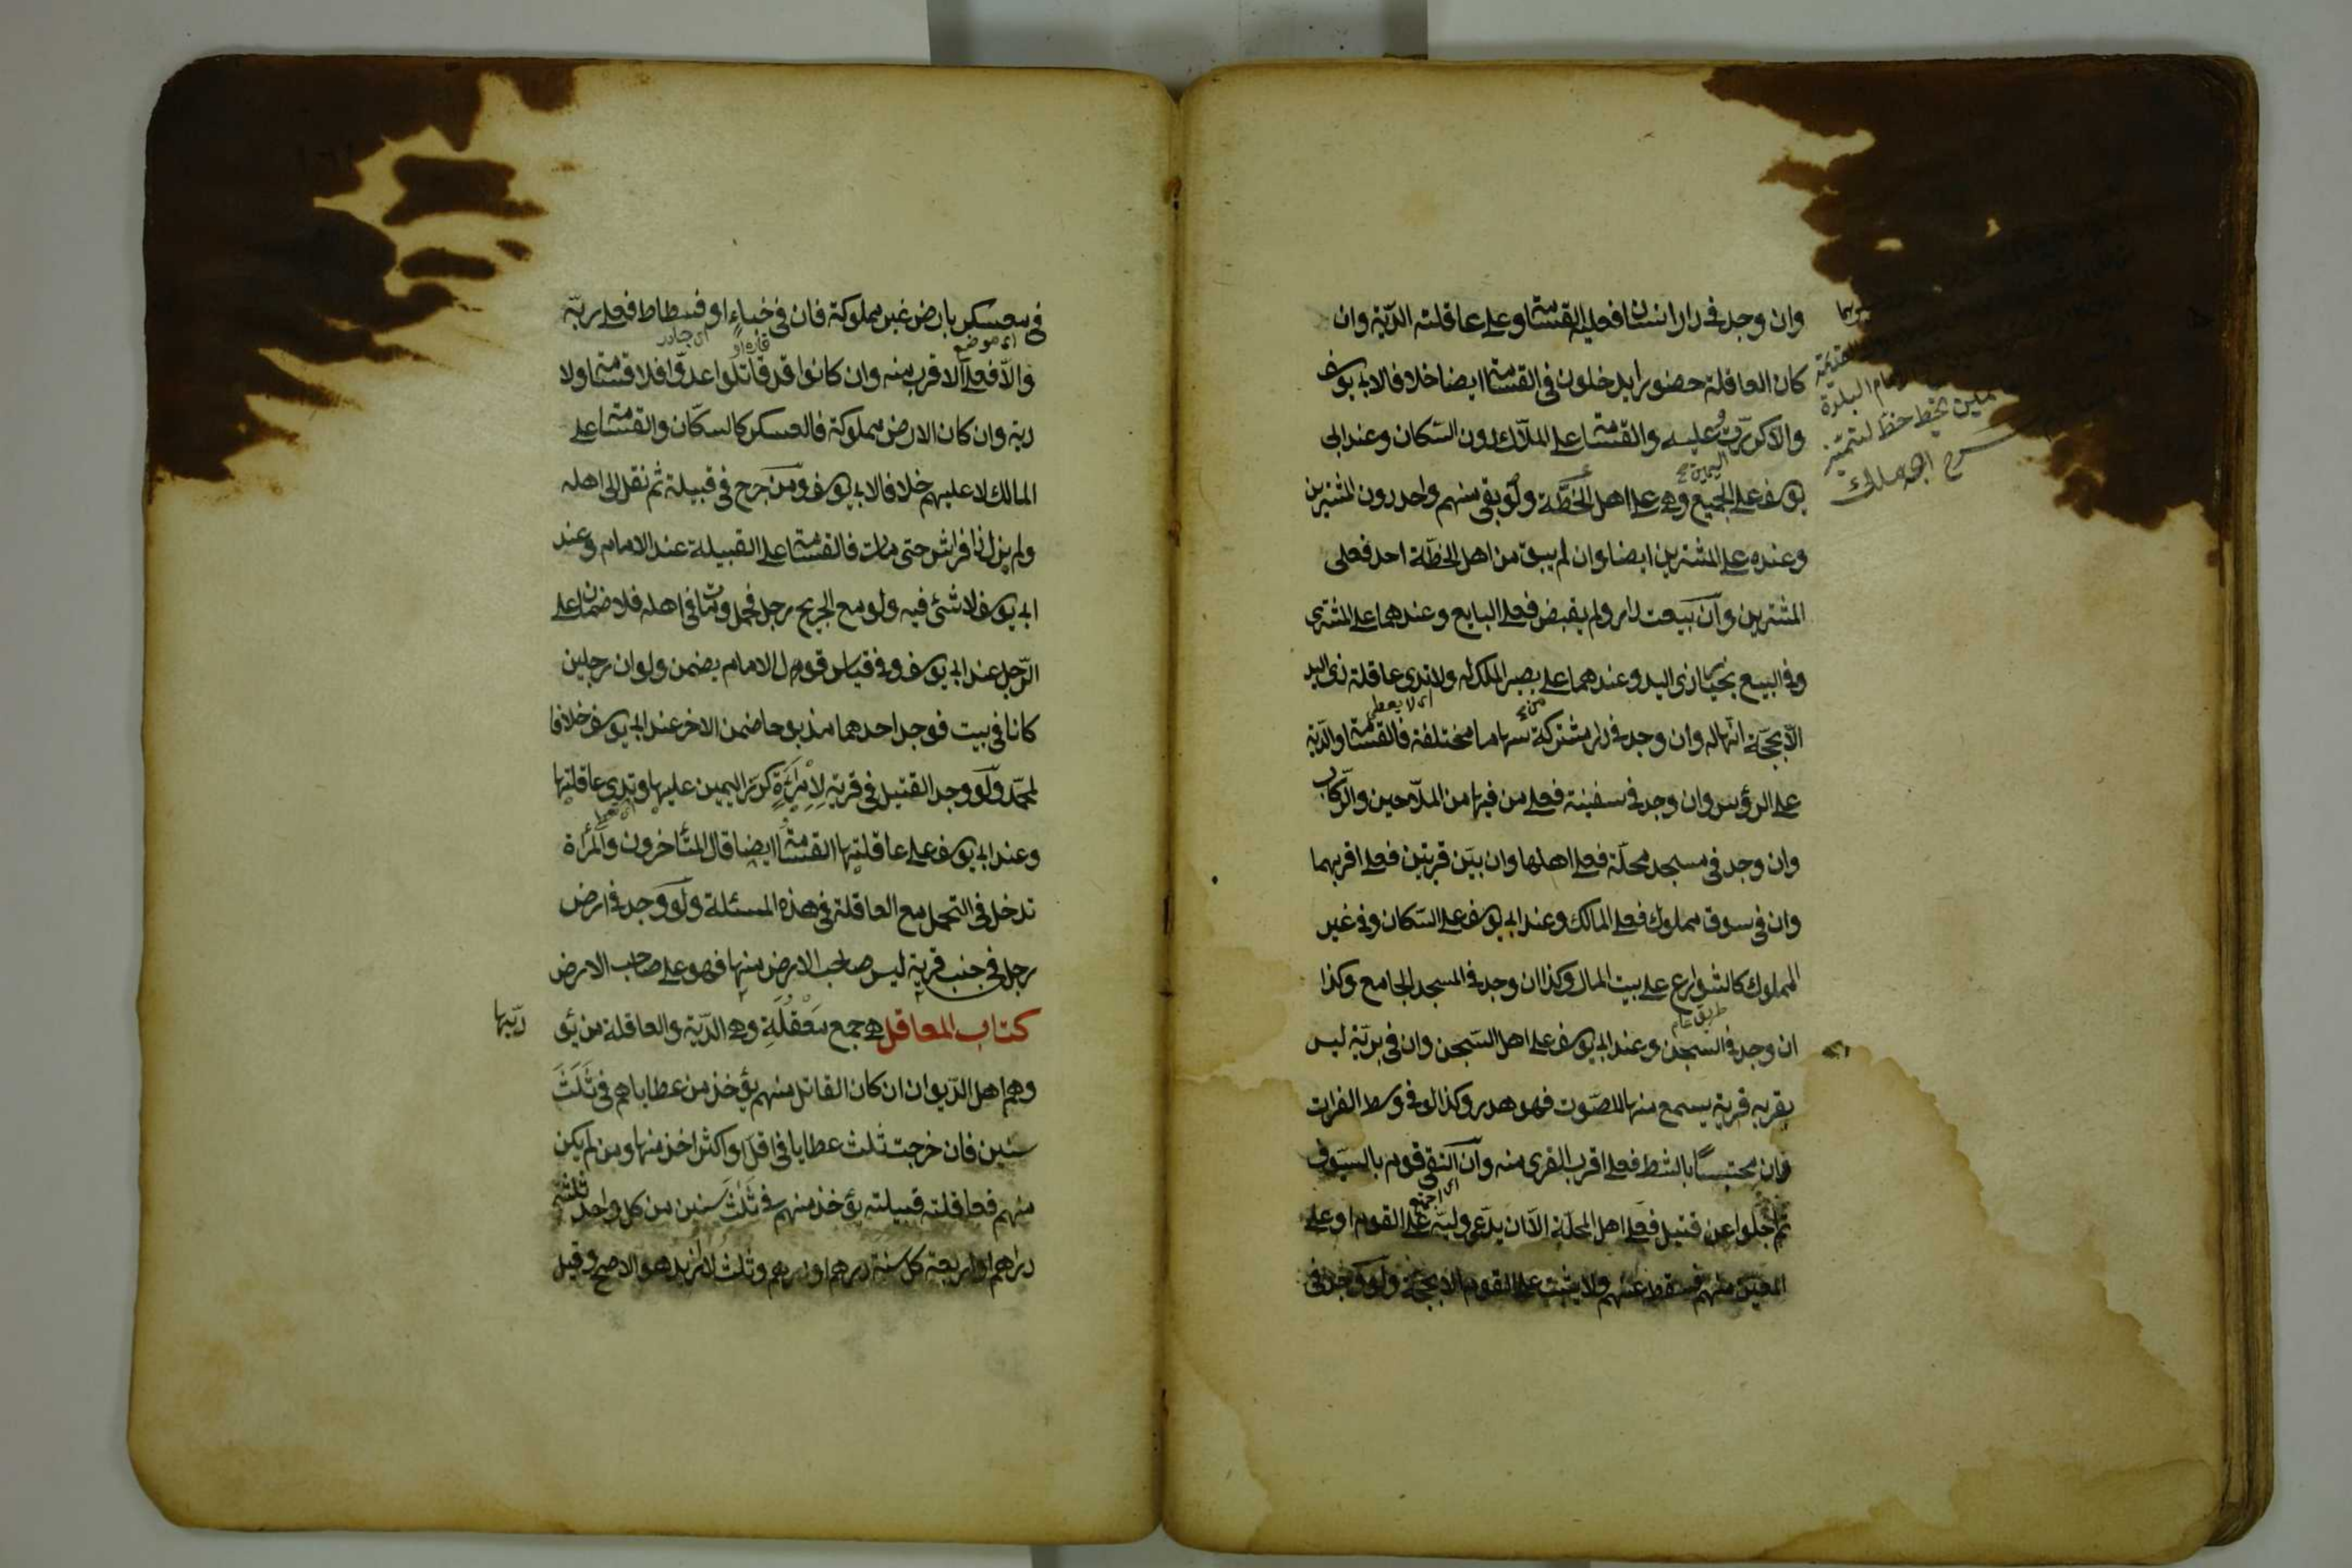 وان وجد فى دار انسان فعليه القسامة وعلى عاقلته الديّة وان
كان العاقلة حضورا يدخلون فى القسامة ايضا خلافا لابى يوسف
والا كرّرت عليه والقسامة على الملّاك دون السّكان وعند ابى
يوسف على الجميع وهى على اهل الخطّة ولو بقى منهم واحد دون المشترين
وعنده على المشترين ايضا وان لم يبق من اهل الخطّة احد فعلى
المشترين وان بيعت دار ولم يقبض فعلى البايع وعندهما على المشترى
وفى البيع بخيار ذى اليد وعندهما على من يصير الملك له ولا تدى عاقلة ذى اليد
الّا بحجّة انّها له وان وجد فى دار مشتركة سهاما مختلفة فالقسامة والديّة
على الرؤس وان وجد فى سفينة فعلى من فيها من الملّاحين والرّكّاب
وان وجد فى مسجد محلّة فعلى اهلها وان بين قريتين فعلى اقربهما
وان فى سوق مملوك فعلى المالك وعند ابى يوسف على السّكان وفى غير
المملوك كالشوارع على بيت المال وكذا ان وجد فى المسجد الجامع وكذا
ان وجد فى السجن وعند ابى يوسف على اهل السّجن وان فى بريّة ليس
بقربه قرية يسمع منها الصّوت فهو هدر وكذا لو فى وسط الفرات
وان محتبسًا بالشط فعلى اقرب القرى منه وان التقى قوم بالسيوف
ثم اجلوا عن قتيل فعلى اهل المحلّة الّا ان يدّعى وليّه على القوم او على
المعيّن منهم فسقط عنهم ولا يثبت على القوم الا بحجّة ولو وجد فى
اى لا يعطى
طريق عام
اى اجتمع
البلدة
بخط
فى معسكر بارض غير مملوكة فان فى خباء او فسطاط فعلى ربّه
والّا فعلى الاقرب منه وان كانوا قد قاتلوا عدوّا فلا قسامة ولا
دية وان كان الارض مملوكة فالعسكر كالسكّان والقسامة على
المالك لا عليهم خلافا لابى يوسف ومن جرح فى قبيلة ثم نقل الى اهله
ولم يزل ذا فراش حتى مات فالقسامة على القبيلة عند الامام وعند
ابى يوسف لا شئ فيه ولو مع الجريح رجل فحمل ومات فى اهله فلا ضمان على
الرّجل عند ابى يوسف وفى قياس قول الامام يضمن ولو ان رجلين
كانا فى بيت فوجد احدهما مذبوحا ضمن الاخر عند ابى يوسف خلافا
لمحمّد ولو وجد القتيل فى قرية لامرأة كرّر اليمين عليها وتدى عاقلتها
وعند ابى يوسف على عاقلتها القسامة ايضا قال المتأخرون والمرأة
تدخل فى التحمل مع العاقلة فى هذه المسئلة ولو وجد فى ارض
رجل فى جنب قرية ليس صاحب الارض منها فهو على صاحب الارض
كتاب المعاقل هى جمع مَعْقُلَةِ وهى الديّة والعاقلة من يؤ
ديّها
وهم اهل الدّيوان ان كان القاتل منهم يؤخذ من عطاياهم فى ثَلَثَ
سنين فان خرجت ثلث عطايا فى اقلّ او اكثر اخذ منها ومن لم يكن
منهم فعاقلته قبيلته يؤخذ منهم فى ثَلَثَ سنين من كل واحد ثلثة
دراهم او اربعة كل سنة درهم او درهم وثلث لا ازيد هو الاصح وقيل
اى موضع